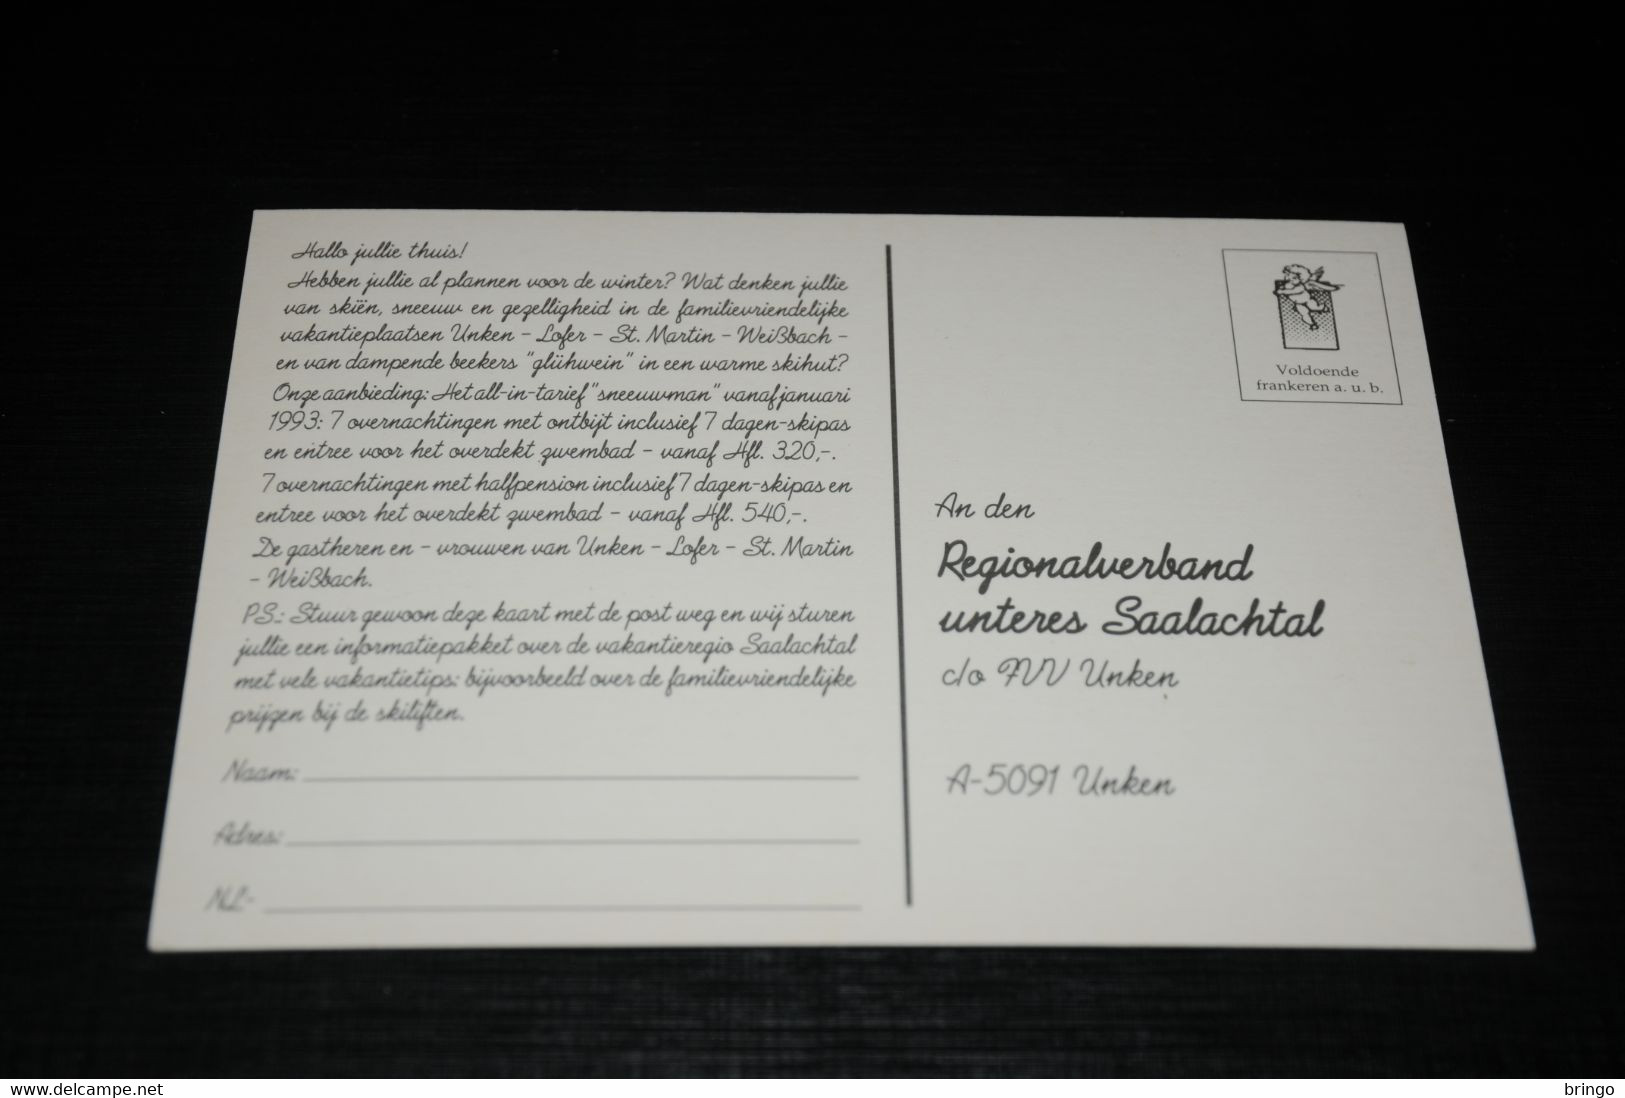 Hallo jullie thuis!
Hebben jullie al plannen voor de winter? Wat denken jullie
van skiën, sneeuw en gezelligheid in de familievriendelijke
vakantieplaatsen Unken – Lofer – St. Martin – Weißbach –
en van dampende beekers "glühwein" in een warme skihut?
Onze aanbieding: Het all-in-tarief "sneeuwman" vanaf januari
1993: 7 overnachtingen met ontbijt inclusief 7 dagen-skipas
en entree voor het overdekt zwembad – vanaf Hfl. 320,-.
7 overnachtingen met halfpension inclusief 7 dagen-skipas en
entree voor het overdekt zwembad – vanaf Hfl. 540,-.
De gastheren en – vrouwen van Unken – Lofer – St. Martin
– Weißbach.
PS.: Stuur gewoon deze kaart met de post weg en wij sturen
jullie een informatiepakket over de vakantieregio Saalachtal
met vele vakantietips: bijvoorbeeld over de familievriendelijke
prijzen bij de skiliften.
Naam:
Adres:
NL-
Voldoende
frankeren a. u. b.
An den
Regionalverband
unteres Saalachtal
c/o FVV Unken
A-5091 Unken
www.delcampe.net
bringo